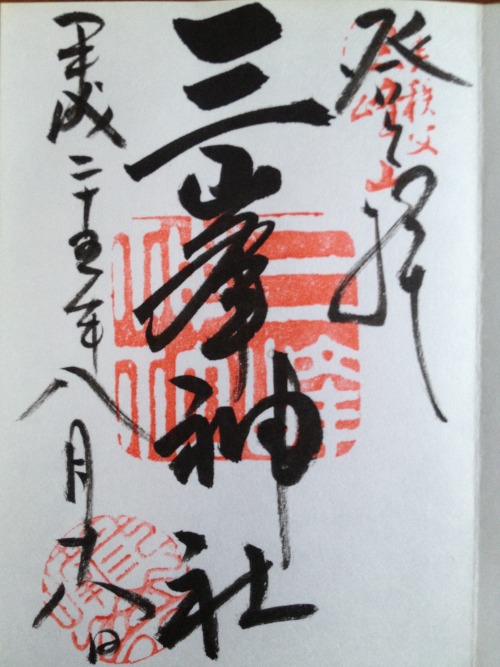 奥秩父
登拝
三峯神社
平成二十五年八月十八日